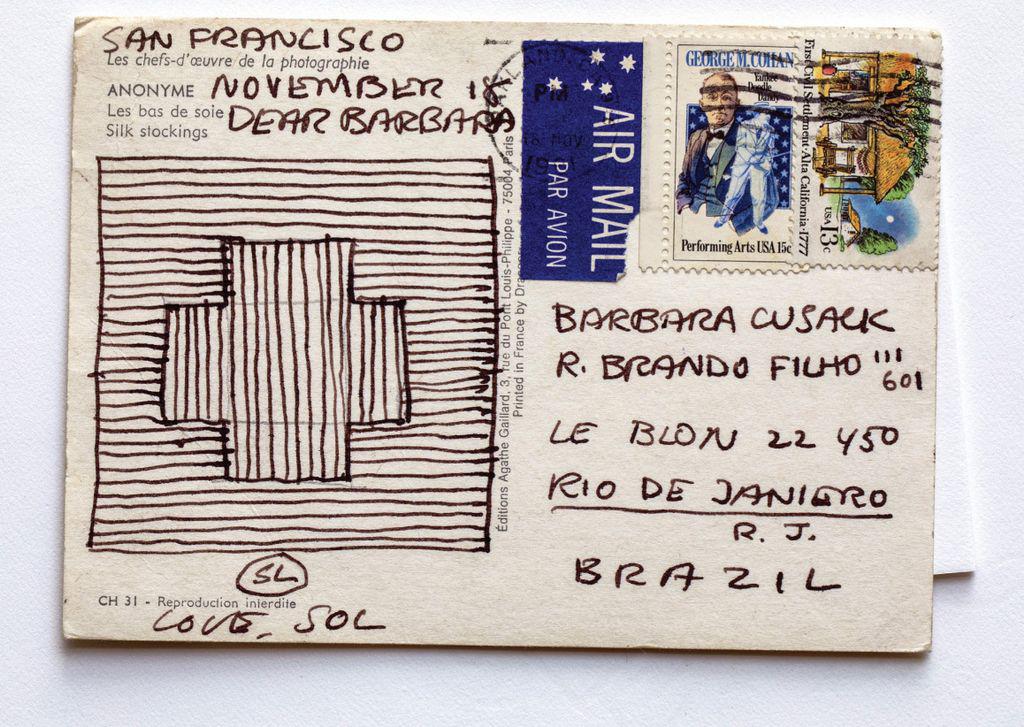 SAN FRANCISCO
Les chefs-d'œuvre de la photographie
ANONYME
NOVEMBER 18
Les bas de soie
Silk stockings
DEAR BARBARA
SL
CH 31 - Reproduction interdite
LOVE, SOL
Éditions Agathe Gaillard, 3, rue du Pont Louis-Philippe - 75004 Paris
Printed in France by
PM
AIR MAIL
PAR AVION
GEORGE M. COHAN
Yankee
Doodle
Dandy
Performing Arts USA 15c
First Civil Settlement · Alta California · 1777
USA 13c
BARBARA CUSACK
R. BRANDO FILHO 111
601
LE BLON 22 450
RIO DE JANIERO
R. J.
BRAZIL